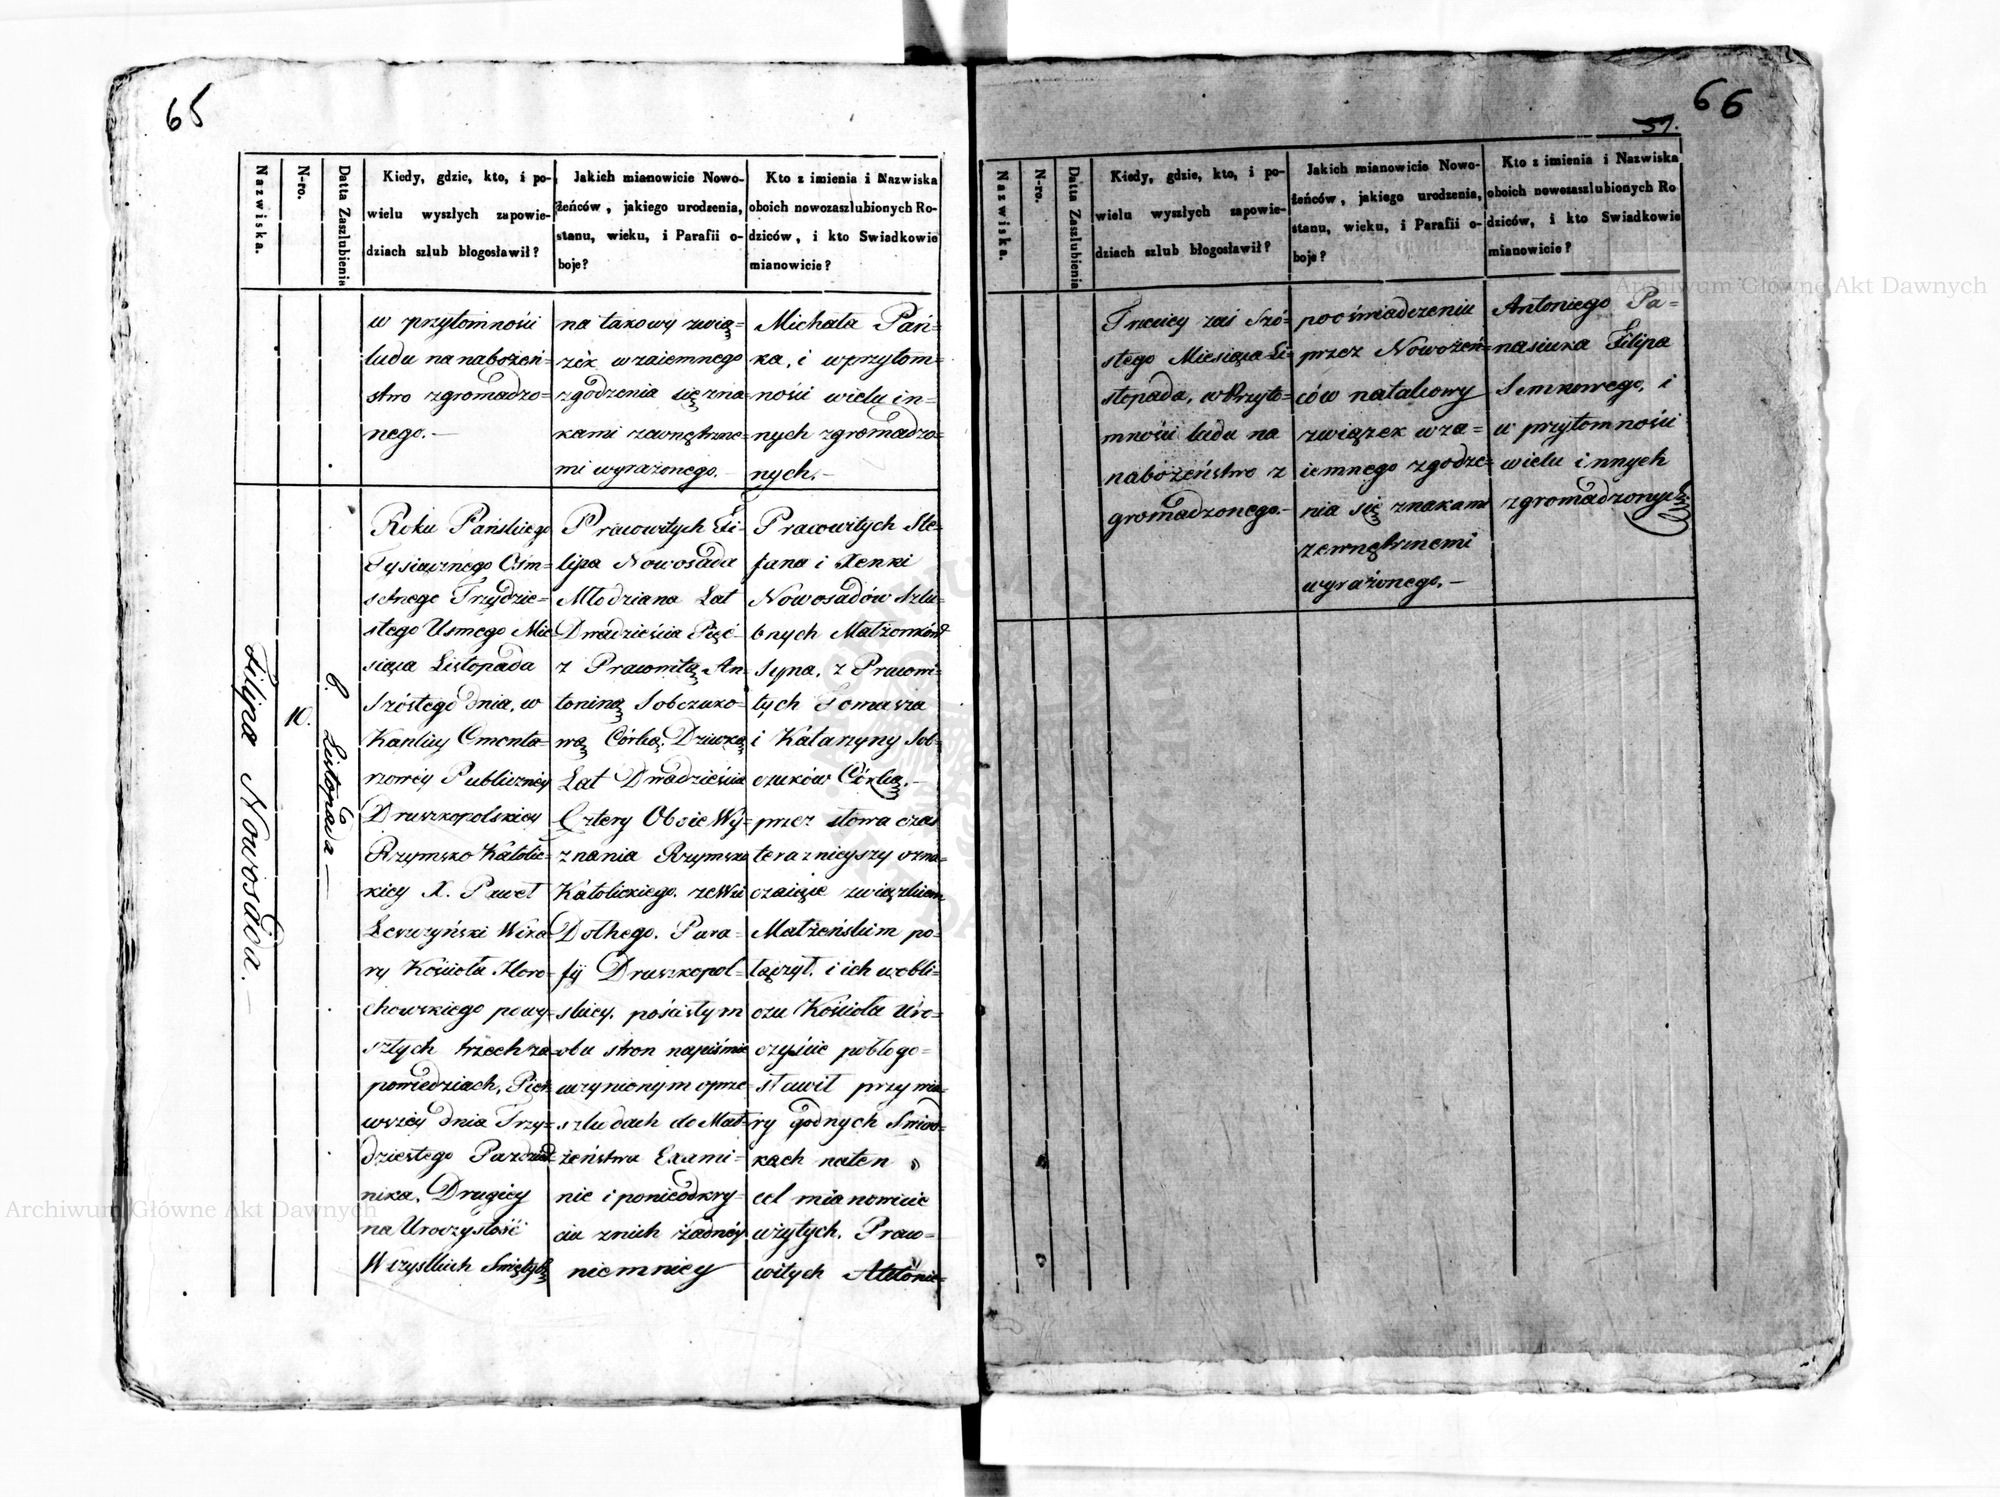 65
Nazwiska.
N-ro.
Datta Zaszlubienia
Kiedy, gdzie, kto, i po-
wielu wyszłych zapowie-
dziach szlub błogosławił?
Jakich mianowicie Nowo-
żeńców, jakiego urodzenia,
stanu, wieku, i Parafii o-
boje?
Kto z imienia i Nazwiska
oboich nowozaszlubionych Ro-
dziców, i kto Swiadkowie
mianowicie?
w przytomności
ludu na nabożeń=
stwo zgromadzo=
nego.—
na takowy zwią=
zek wzaiemnego
zgodzenia się zna
kami zewnętrzne=
mi wyrażonego.—
Michała Pań=
ka, i w przytom=
ności wielu in=
nych zgromadzo=
nych.—
Filipa Nowosada.—
10.
6. Listopada—
Roku Pańskiego
Tysiącznego Ośm=
setnego Trzydzie=
stego Usmego Mie
siąca Listopada
Szóstego dnia, w
Kaplicy Cmenta=
rzowéy Publiczney
Druszkopolskiey
Rzymsko Katolic=
kiey X. Paweł
Leszczyński Wika
ry Kościoła Horo=
chowskiego po wy=
szłych trzech za=
powiedziach, Pier
wszéy dnia Trzy=
dziestego Paździer
nika, Drugiey
na Uroczystość
Wszystkich Swiętych
Pracowitych Fi=
lipa Nowosada
Młodziana Lat
Dwadzieścia Pięć
z Pracowitą An=
toniną Sobczuko=
wą Córką, Dziwką
Lat Dwadzieścia
Cztery Oboie Wy=
znania Rzymsko
Katolickiego. ze Wsi
Dołhego. Para=
fij Druszkopol=
skiey, pościstym
obu stron na piśmie
uczynionym o prze=
szkodach do Mał=
żeństwa Exami=
nie i po nieodkry=
ciu z nich żadnéy
niemniey
Pracowitych Ste=
fana i Xenki
Nowosadów Szlu=
bnych Małżonków
Syna, z Pracowi=
tych Tomasza
i Katarzyny Sob=
czuków Córką.—
przez słowa czas
teraznieyszy ozna=
czaiące związkiem
Małżeńskim po=
łączył. i ich w obli=
czu Kościoła Uro=
czyście pobłogo=
sławił przy wia=
ry godnych Swiad=
kach na ten
cel mianowicie
użytych, Praco=
witych Antonie=
66
57.
Nazwiska.
N-ro.
Datta Zaszlubienia
Kiedy, gdzie, kto, i po-
wielu wyszłych zapowie-
dziach szlub błogosławił?
Jakich mianowicie Nowo-
żeńców, jakiego urodzenia,
stanu, wieku, i Parafii o-
boje?
Kto z imienia i Nazwiska
oboich nowozaszlubionych Ro
dziców, i kto Swiadkowie
mianowicie?
Trzeciey zaś Szó=
stego Miesiąca Li=
stopada, w Przyto=
mności ludu na
nabożeństwo z
gromadzonego.—
poświadczeniu
przez Nowożeń=
ców na takowy
związek wza=
iemnego zgodze=
nia się znakami
zewnętrznemi
wyrażonego.—
Antoniego Pa=
nasiuka Filipa
Semkowego, i
w przytomności
wielu innych
zgromadzonych
Archiwum Główne Akt Dawnych
Archiwum Główne Akt Dawnych